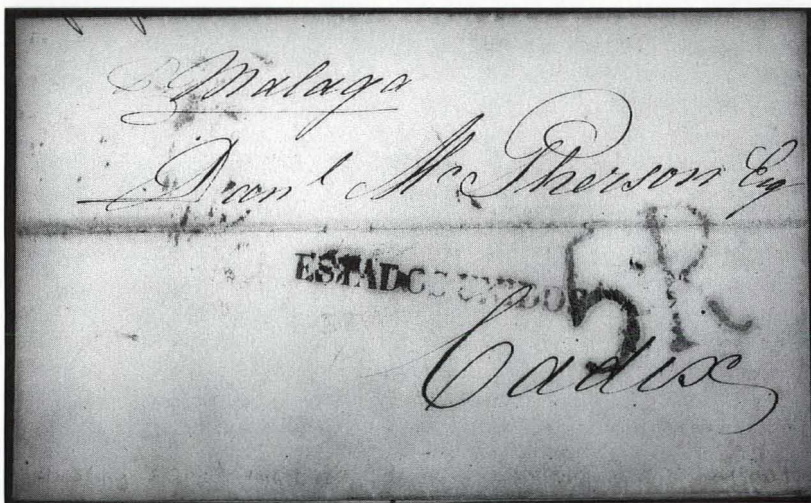 Malaga
McPherson Esq
ESTADOS UNIDOS
5R
Cadix